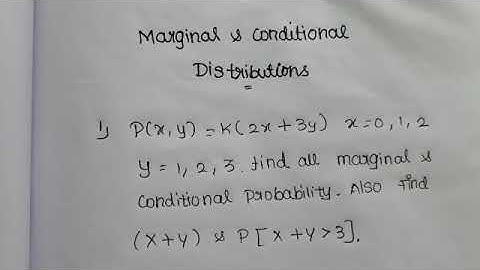 Marginal & conditional
Distributions
1) P(x,y) = K(2x+3y) x=0,1,2
y = 1, 2, 3. find all marginal &
conditional probability. Also find
(X+Y) & P[X+Y>3].